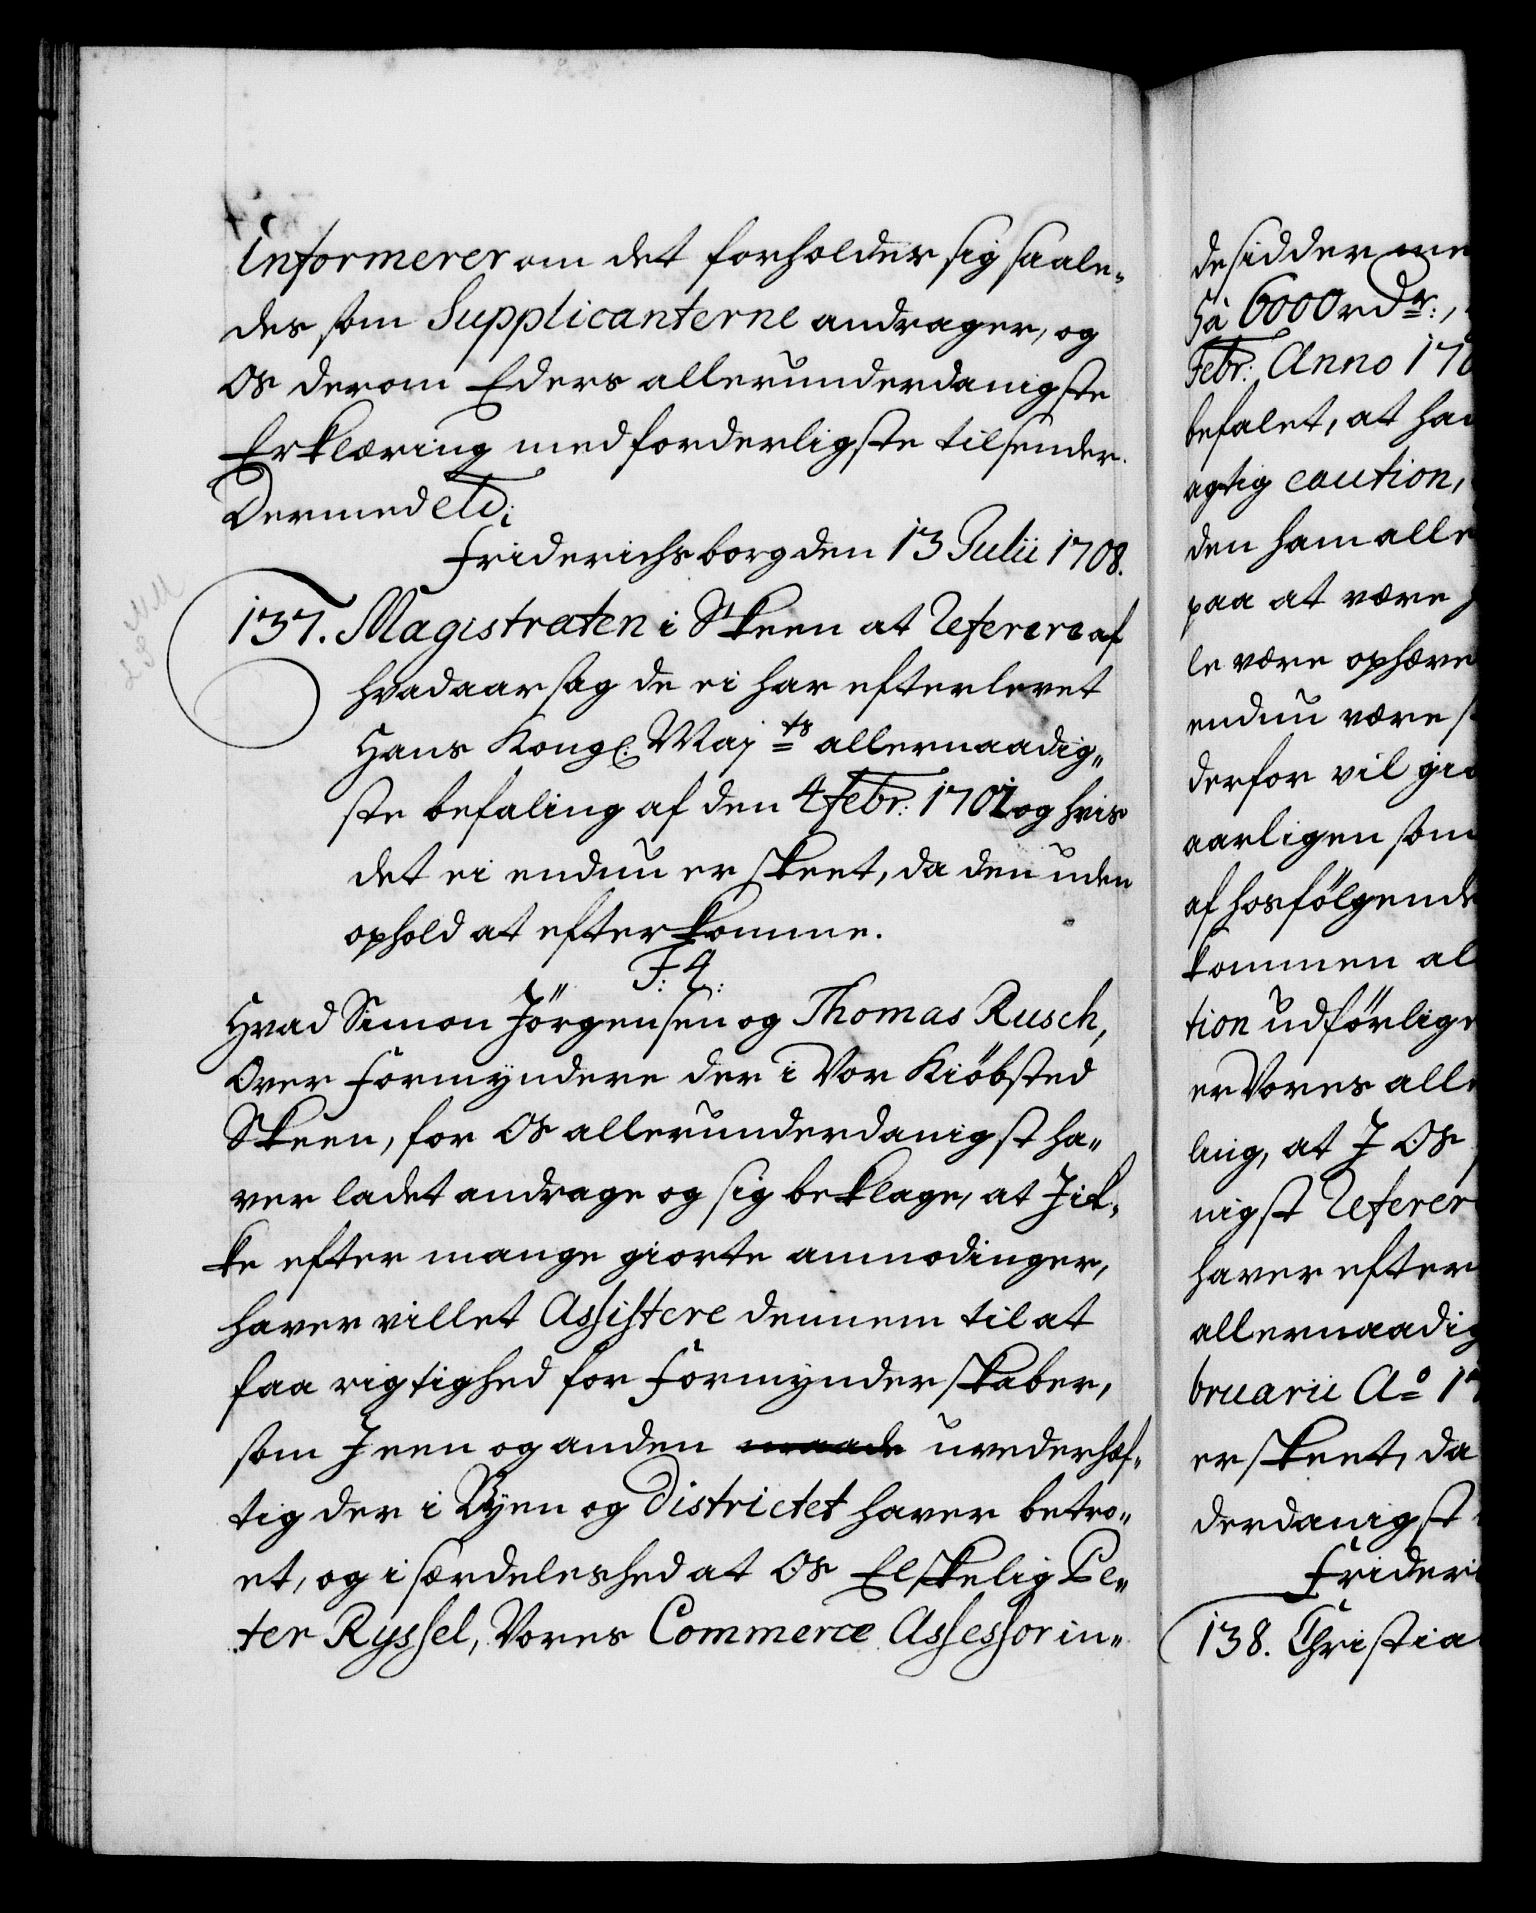 informerer om det forholder sig saale„
des som Supplicanterne andrager, og
Os derom Eders allerunderdanigste
Erklæring med forderligste tilsender.
Dermed etc:
Friderichsborg den 13 Julii 1708.
137. Magistraten i Skeen at referere af
hvad aarsag de ei har efterlevet
Hans Kongl. Maj ts allernaadig„
ste befaling af den 4 febr: 1701 og hvis
det ei endnu er skeet, da den uden
ophold at efterkomme.
F: 4.
Hvad Simon Jörgensen og Thomas Rusch,
Over Formyndere der i Vor Kiöbsted
Skeen, for Os allerunderdanigst ha„
ver ladet andrage og sig beklage, at J ik„
ke efter mange giorte anmodinger,
haver villet Assistere dennem til at
faa rigtighed for Formynderskaber,
som J een og anden uvederhæf„
tig der i Byen og Districtet haver betro„
et, og i særdeleshed at Os Elskelig Pe„
ter Ryssel, Vores Commerce Assessor in„
de sidder me
på 6000 rdr:,
Febr: Anno 170
befalet, at ha
agtig caution,
den ham alle
paa at være
le være ophæve
endnu være s
derfor vil gi
aarligen som
af hosfølgende
kommen al
tion udförlige
er Vores alle
ling, at J Os
nigst referer
haver efter
allernaadig
bruarii Ao 17
er skeet, da
derdanigst
Frideri
138. Christia